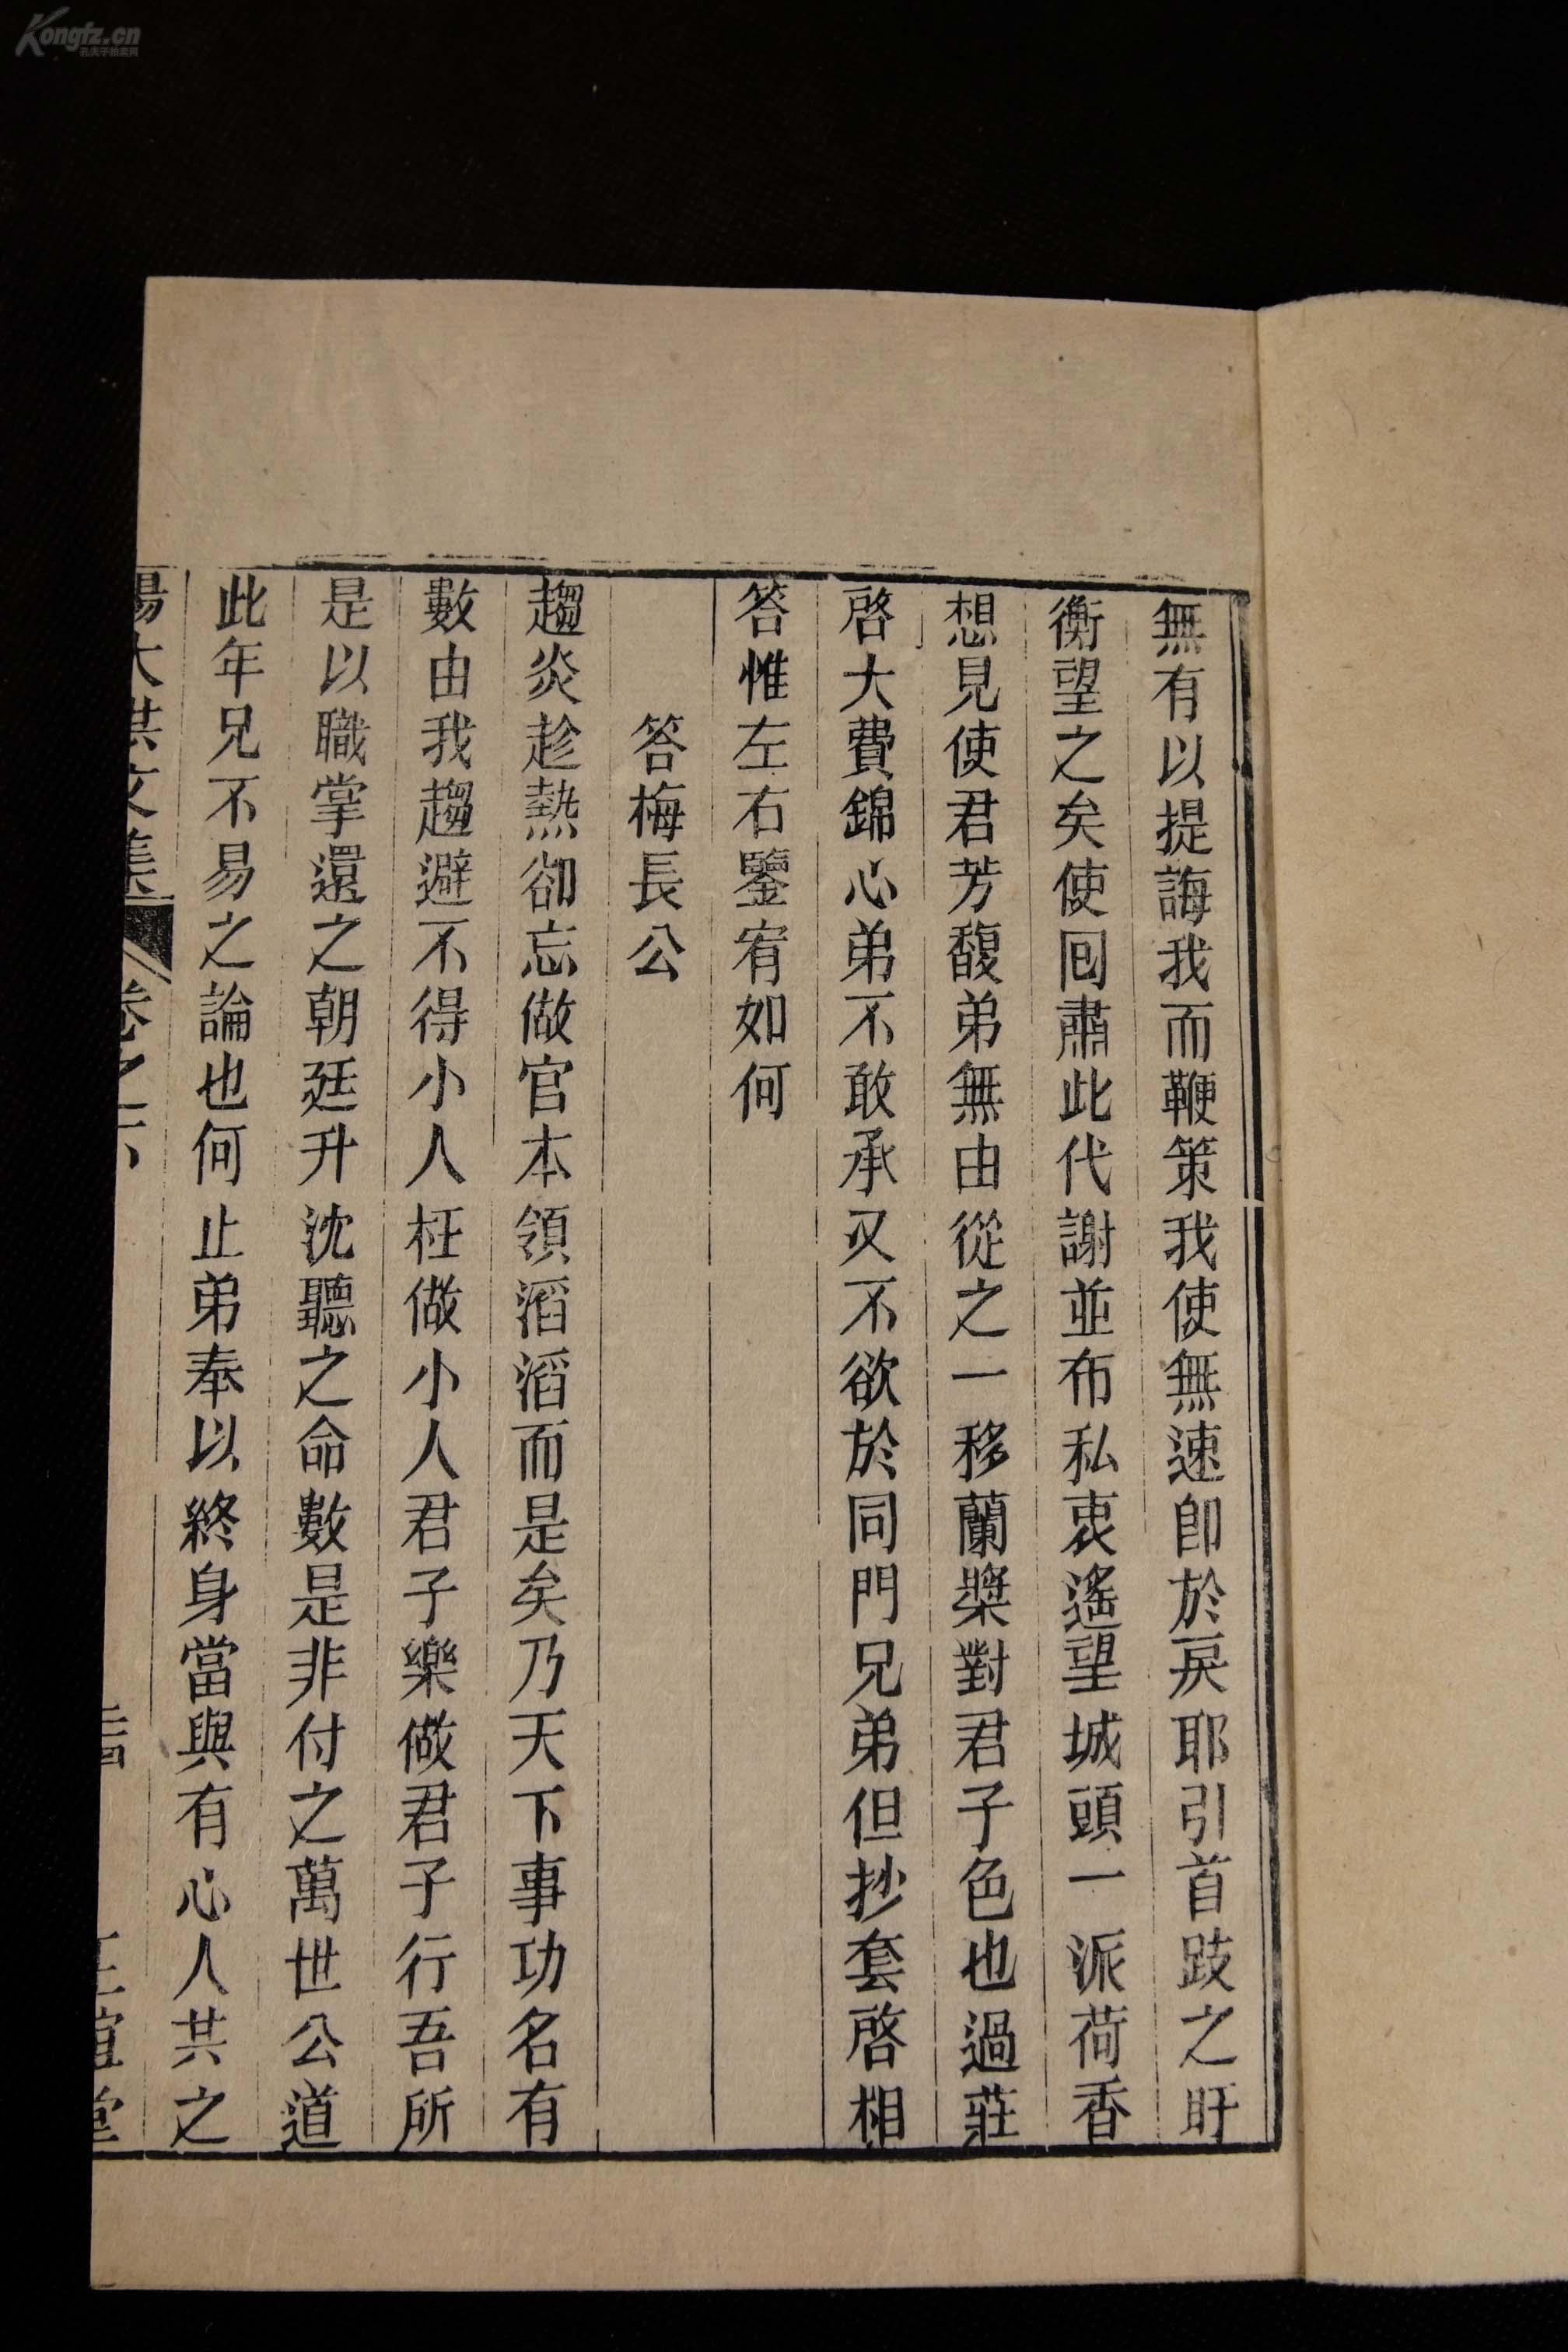 無有以提誨我而鞭策我使無速卽於戾耶引首跂之盱
衡望之矣使囘肅此代謝並布私衷遙望城頭一派荷香
想見使君芳馥弟無由從之一移蘭槳對君子色也過莊
啓大費錦心弟不敢承又不欲於同門兄弟但抄套啓相
答惟左右鑒宥如何
答梅長公
趨炎趁熱卻忘做官本領滔滔而是矣乃天下事功名有
數由我趨避不得小人枉做小人君子樂做君子行吾所
是以職掌還之朝廷升沈聽之命數是非付之萬世公道
此年兄不易之論也何止弟奉以終身當與有心人共之
楊大洪文集 卷之六 正誼堂
Kongfz.cn
孔夫子拍卖网